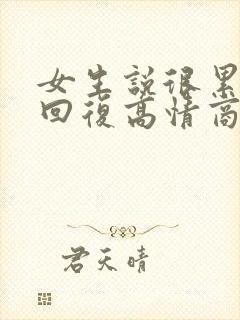 女生說很累
回復高情商
君天晴